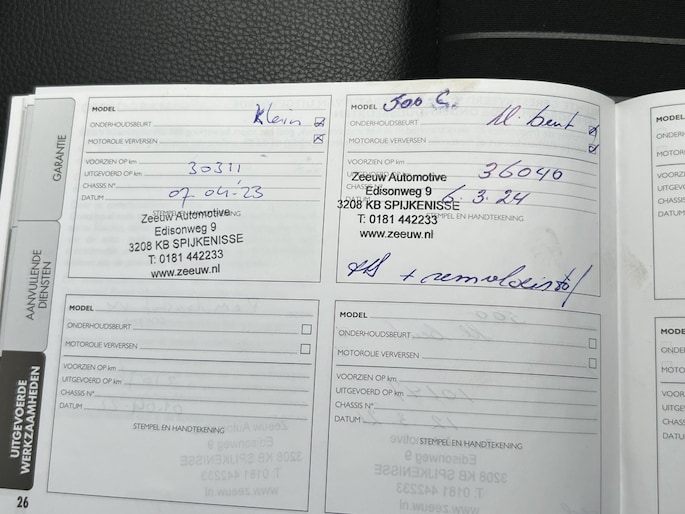 GARANTIE
AANVULLENDE
DIENSTEN
UITGEVOERDE
WERKZAAMHEDEN
26
MODEL
ONDERHOUDSBEURT Klein
MOTOROLIE VERVERSEN
VOORZIEN OP km
UITGEVOERD OP km 30311
CHASSIS N°
DATUM 07-04-23
STEMPEL EN HANDTEKENING
Zeeuw Automotive
Edisonweg 9
3208 KB SPIJKENISSE
T: 0181 442233
www.zeeuw.nl
MODEL 500
ONDERHOUDSBEURT kl. beurt
MOTOROLIE VERVERSEN
VOORZIEN OP km
UITGEVOERD OP km 36040
CHASSIS N°
DATUM 6.3.24
STEMPEL EN HANDTEKENING
Zeeuw Automotive
Edisonweg 9
3208 KB SPIJKENISSE
T: 0181 442233
www.zeeuw.nl
+ remvloeistof
MODEL
ONDERHOUDSBEURT
MOTOROLIE VERVERSEN
VOORZIEN OP km
UITGEVOERD OP km
CHASSIS N°
DATUM
STEMPEL EN HANDTEKENING
MODEL
ONDERHOUDSBEURT
MOTOROLIE VERVERSEN
VOORZIEN OP km
UITGEVOERD OP km
CHASSIS N°
DATUM
STEMPEL EN HANDTEKENING
MODEL
MODEL